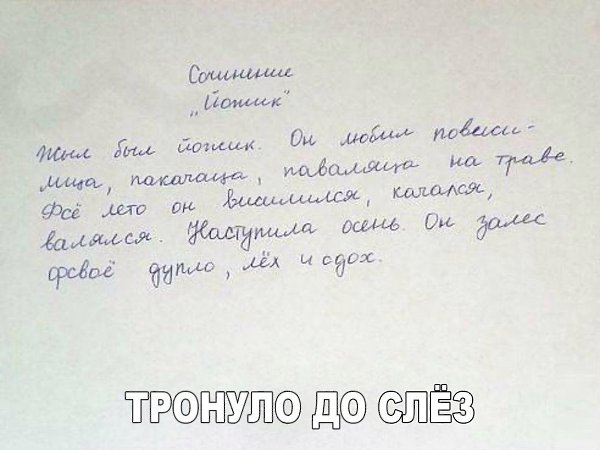 Сочинение
„Йожик"
Жыл был йожик. Он любил повыси-
лица, пакачаца, паваляца на траве.
Фсё лето он висилился, качался,
валялся. Наступила осень. Он залес
фсваё дупло, лёх и сдох.
ТРОНУЛО ДО СЛЁЗ